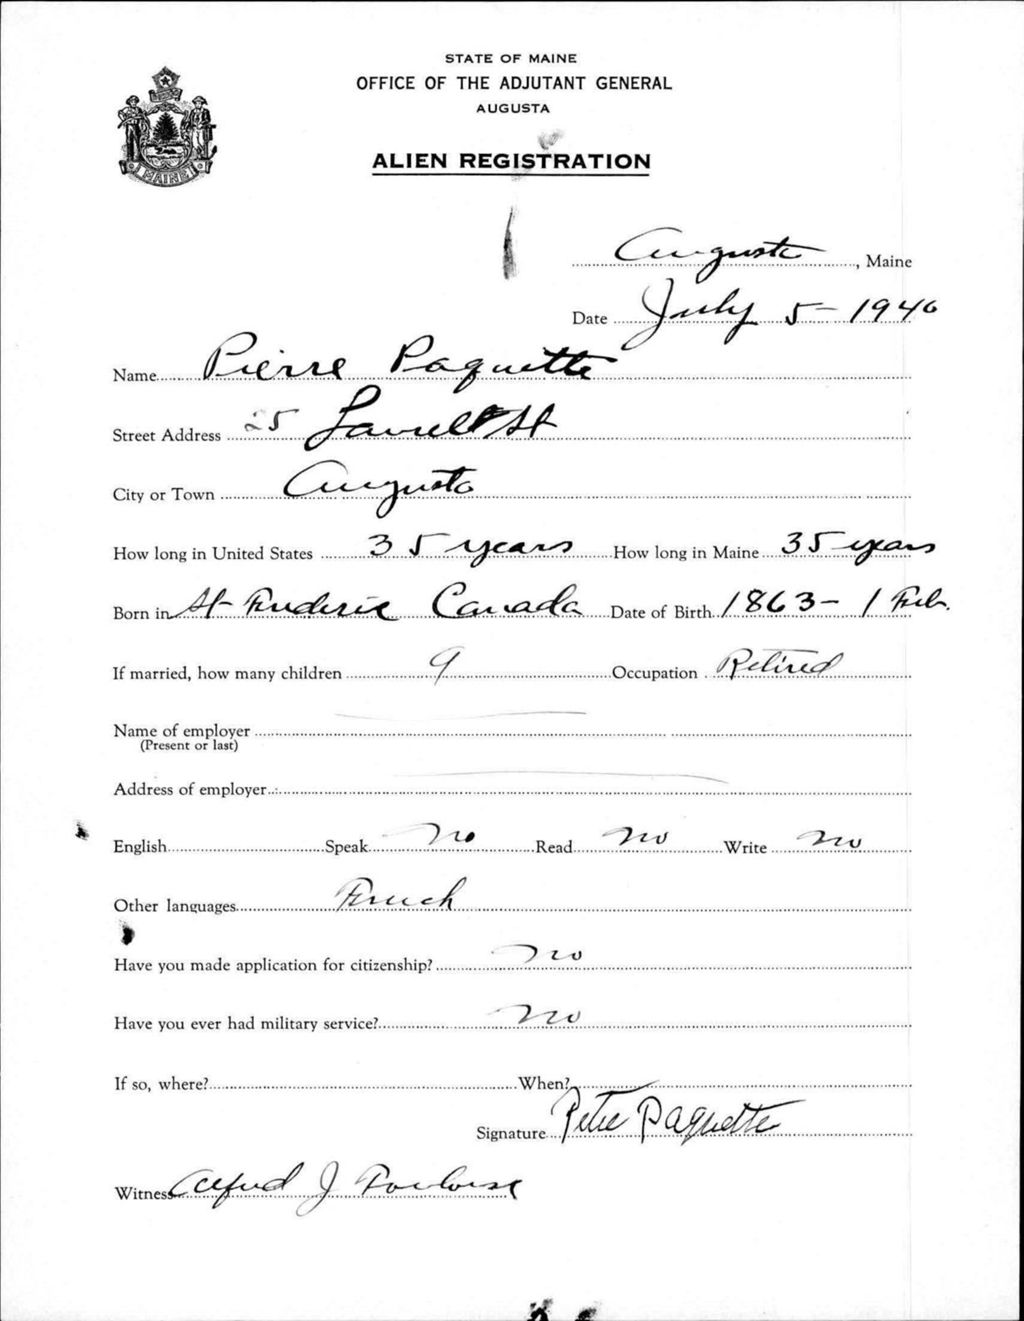 STATE OF MAINE
OFFICE OF THE ADJUTANT GENERAL
AUGUSTA
ALIEN REGISTRATION
MAINE
Augusta, Maine
Date July 5-1940
Name Pierre Paquette
Street Address 25 Laurel St
City or Town Augusta
How long in United States 35 years How long in Maine 35 years
Born in St Frederic Canada Date of Birth 1863- 1 Feb.
If married, how many children 9 Occupation Retired
Name of employer
(Present or last)
Address of employer
English Speak no Read no Write no
Other languages French
Have you made application for citizenship? no
Have you ever had military service? no
If so, where? When?
Signature Paquette
Witness Alfred J